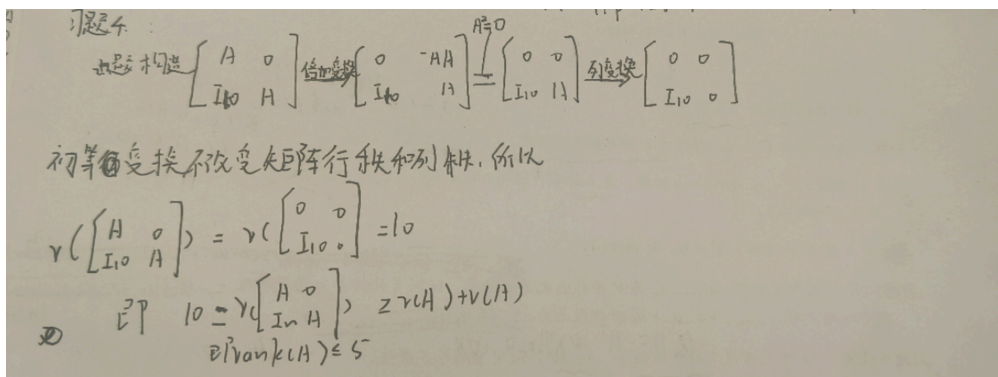 习题4.
A²=0
构造 [A 0; I10 A] 倍加变换→ [0 -AA; I10 A] = [0 0; I10 A] 列变换→ [0 0; I10 0]
初等变换不改变矩阵行秩和列秩,所以
r([A 0; I10 A]) = r([0 0; I10 0] = 10
即 10 = r([A 0; In A]) ≥ r(A)+r(A)
即rank(A) ≤ 5